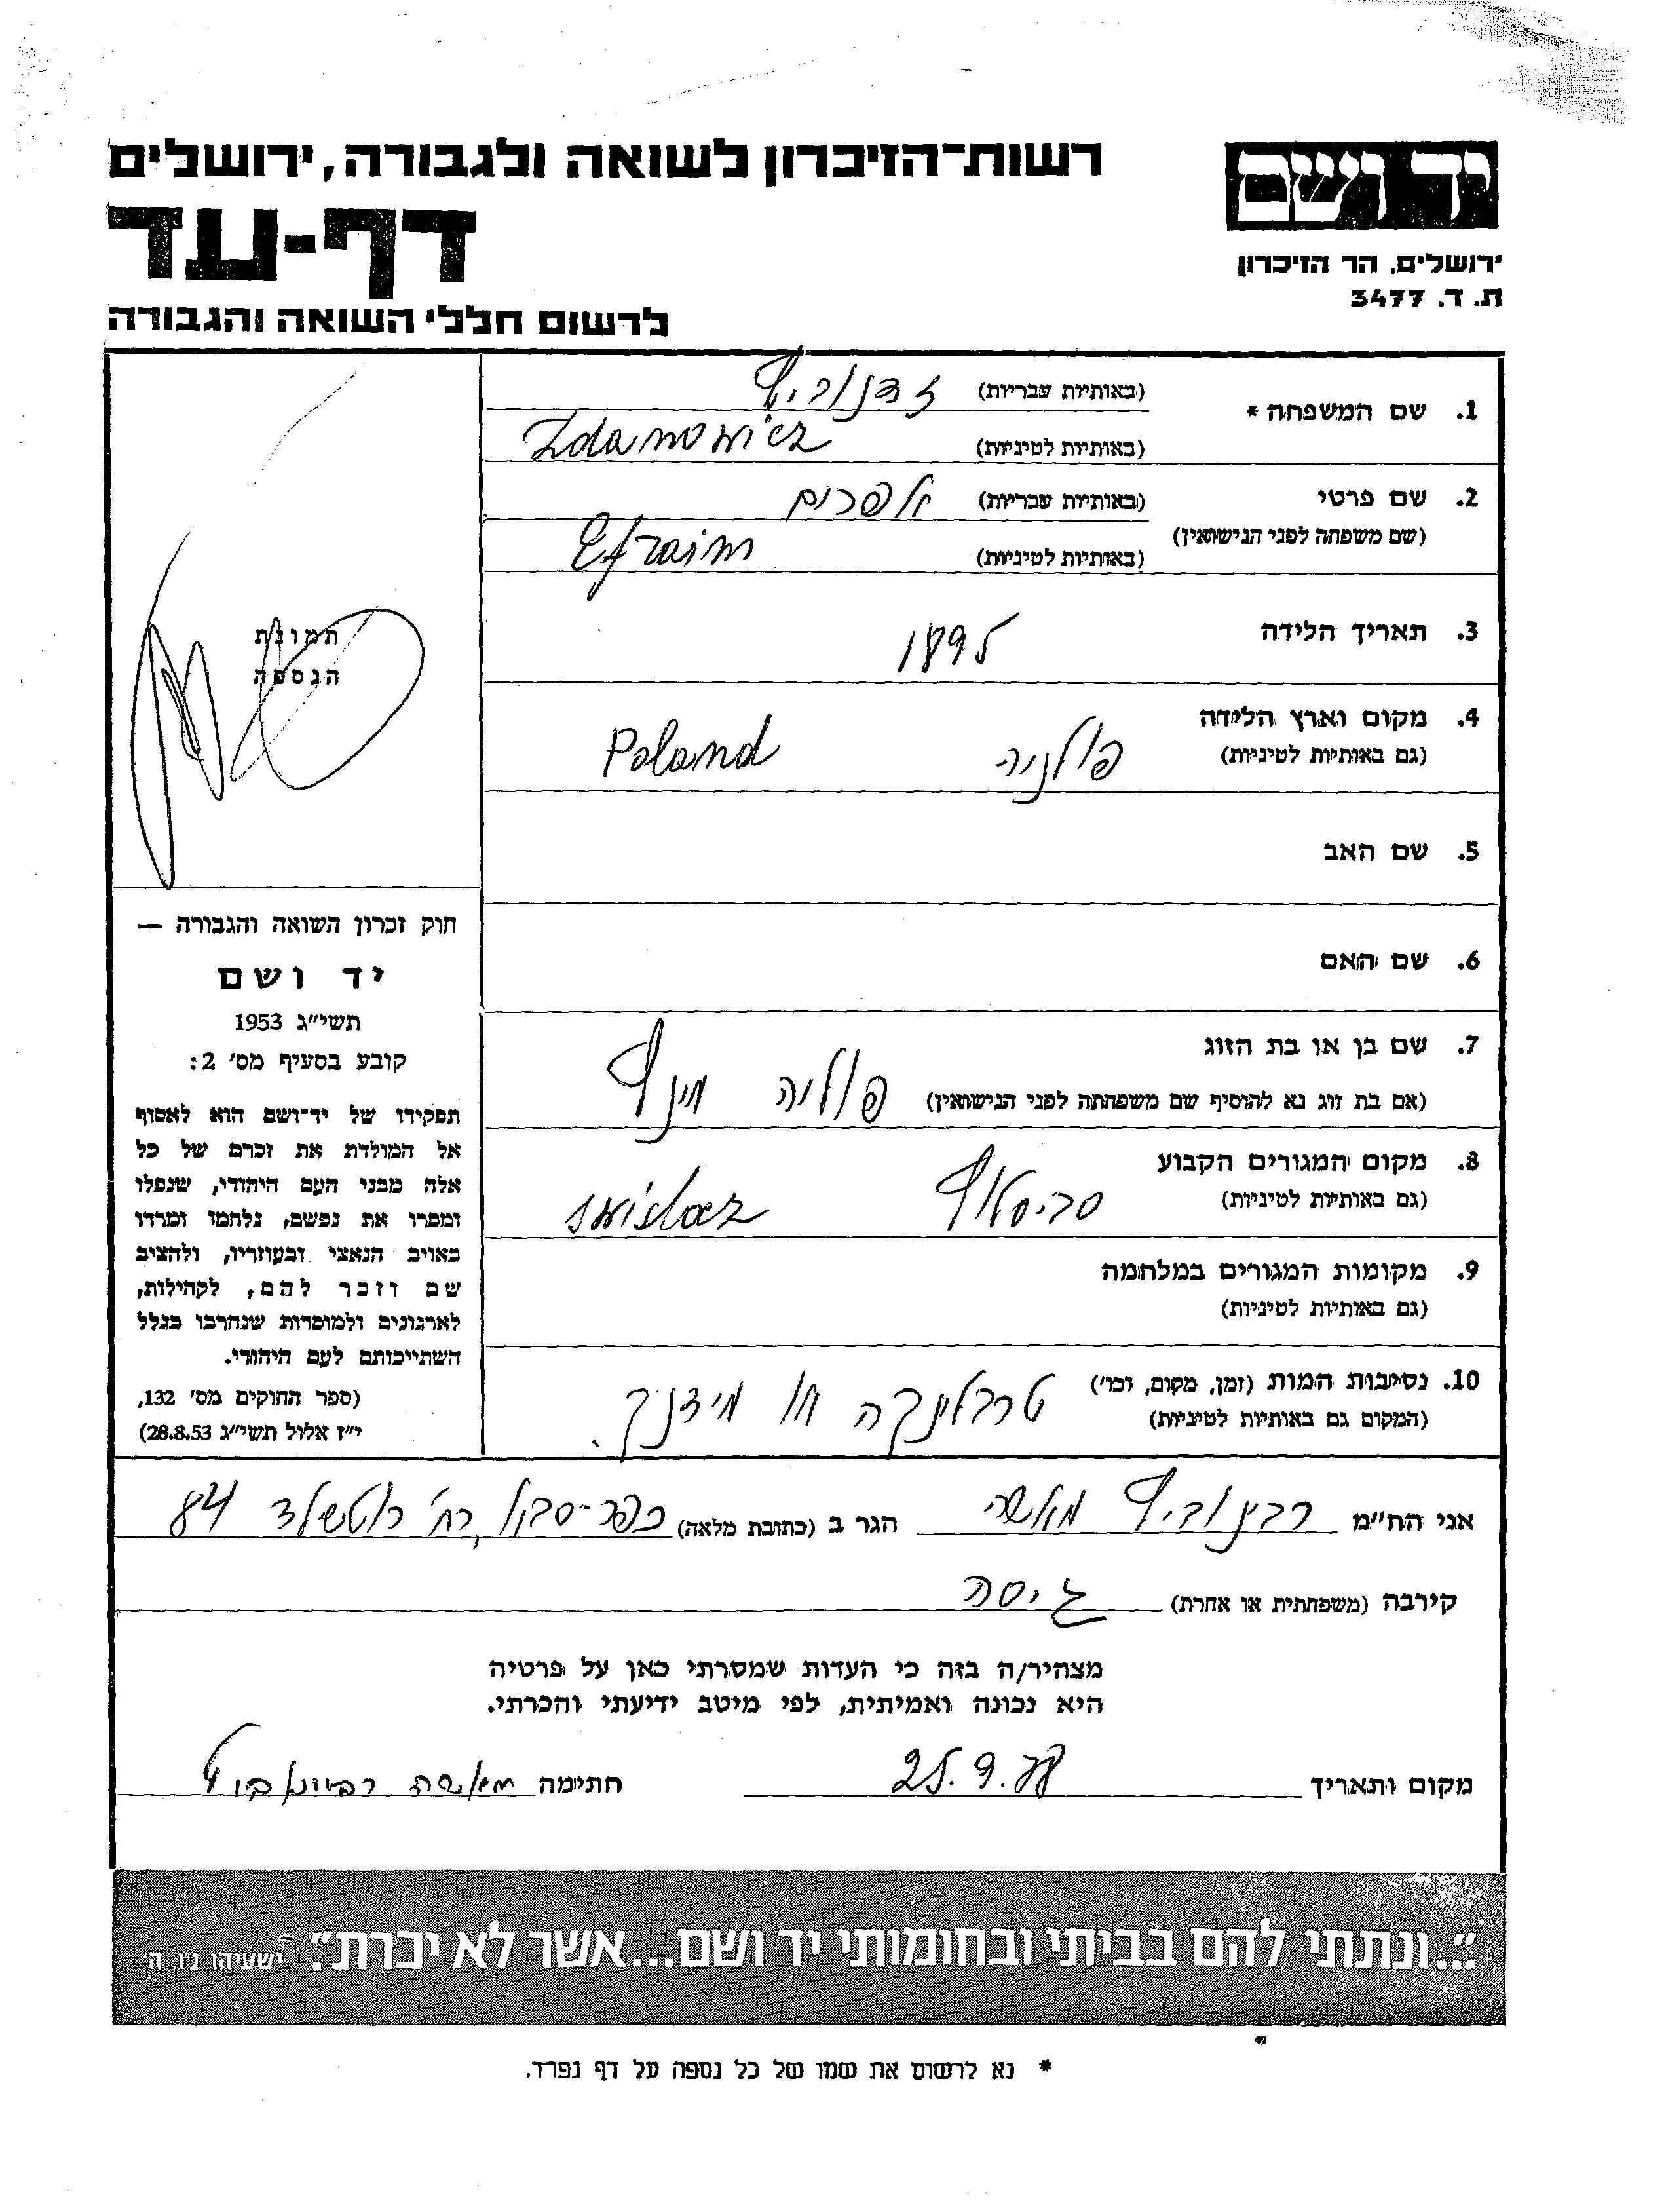 רשות־הזיכרון לשואה ולגבורה, ירושלים
דף-עד
לרשום חללי השואה והגבורה
יד ושם
ירושלים, הר הזיכרון
ת. ד. 3477
1. שם המשפחה * (באותיות עבריות) זדנוביץ
(באותיות לטיניות) Zdanowicz
2. שם פרטי (באותיות עבריות) אפרים
(שם משפחה לפני הנישואין) (באותיות לטיניות) Efraim
3. תאריך הלידה 1895
4. מקום וארץ הלידה פולניה Poland
(גם באותיות לטיניות)
5. שם האב
6. שם האם
7. שם בן או בת הזוג
(אם בת זוג נא להוסיף שם משפחתה לפני הנישואין) פוליה מינץ
8. מקום המגורים הקבוע סביסלוץ swislocz
(גם באותיות לטיניות)
9. מקומות המגורים במלחמה
(גם באותיות לטיניות)
10. נסיבות המות (זמן, מקום, וכו') טרבלינקה או מידנק.
(המקום גם באותיות לטיניות)
תמונת
הנספה
חוק זכרון השואה והגבורה —
יד ושם
תשי"ג 1953
קובע בסעיף מס' 2:
תפקידו של יד־ושם הוא לאסוף
אל המולדת את זכרם של כל
אלה מבני העם היהודי, שנפלו
ומסרו את נפשם, נלחמו ומרדו
באויב הנאצי ובעוזריו, ולהציב
שם וזכר להם, לקהילות,
לארגונים ולמוסדות שנחרבו בגלל
השתייכותם לעם היהודי.
(ספר החוקים מס' 132,
י"ז אלול תשי"ג 28.8.53)
אני הח"מ רבינוביץ מאשה הגר ב (כתובת מלאה) כפר-סבא, רח' רוטשילד 84
קירבה (משפחתית או אחרת) גיסה
מצהיר/ה בזה כי העדות שמסרתי כאן על פרטיה
היא נכונה ואמיתית, לפי מיטב ידיעתי והכרתי.
מקום ותאריך 25.9.88 חתימה מאשה רבינוביץ
"...ונתתי להם בביתי ובחומותי יד ושם...אשר לא יכרת". ישעיהו נ"ו ה'
* נא לרשום את שמו של כל נספה על דף נפרד.